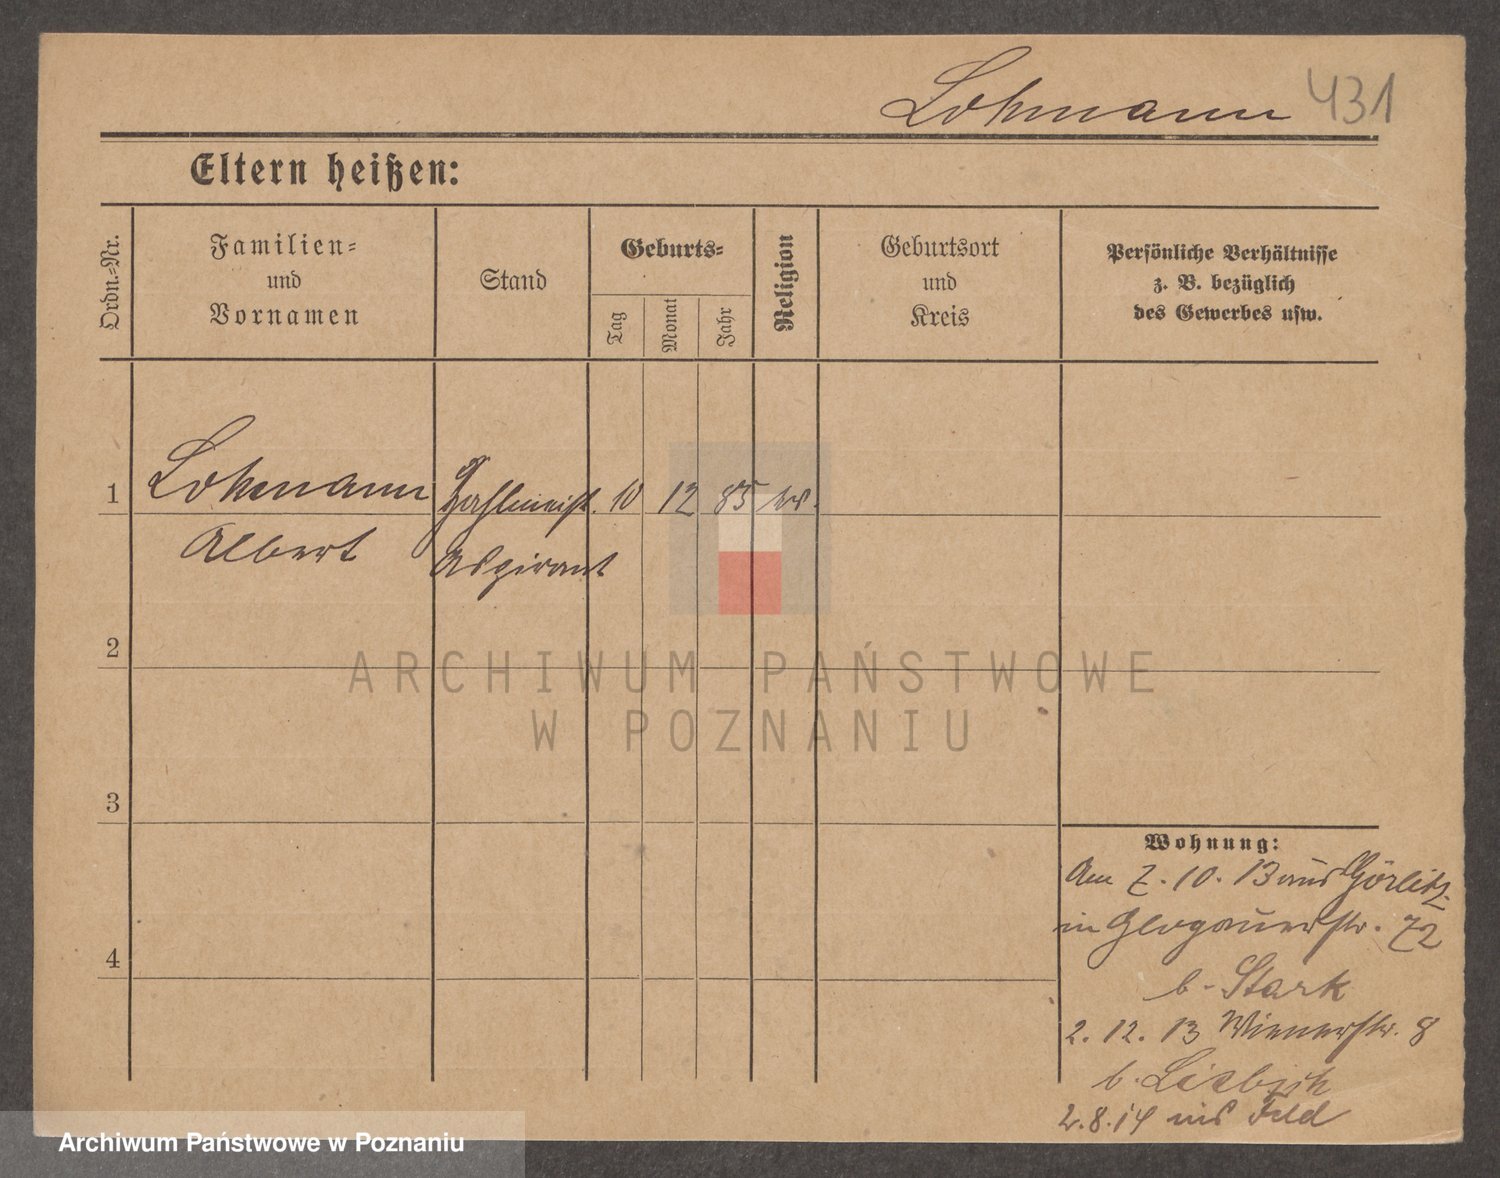 Lohmann 431
Eltern heißen:
Ordn.=Nr.
Familien=
und
Vornamen
Stand
Geburts=
Tag
Monat
Jahr
Religion
Geburtsort
und
Kreis
Persönliche Verhältnisse
z. B. bezüglich
des Gewerbes usw.
1 Lohmann Zahlmeist. 10 12 85 ev.
Albert Aspirant
2
3
4
Wohnung:
Am 7. 10. 13 aus Görlitz
in Glogauerstr. 72
b. Stark
2. 12. 13 Wienerstr. 8
b. Liebich
2.8.14 ins Feld
ARCHIWUM PAŃSTWOWE
W POZNANIU
Archiwum Państwowe w Poznaniu